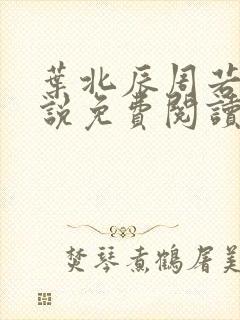 葉北辰周若
說免費閱讀
焚琴煮鶴屠美